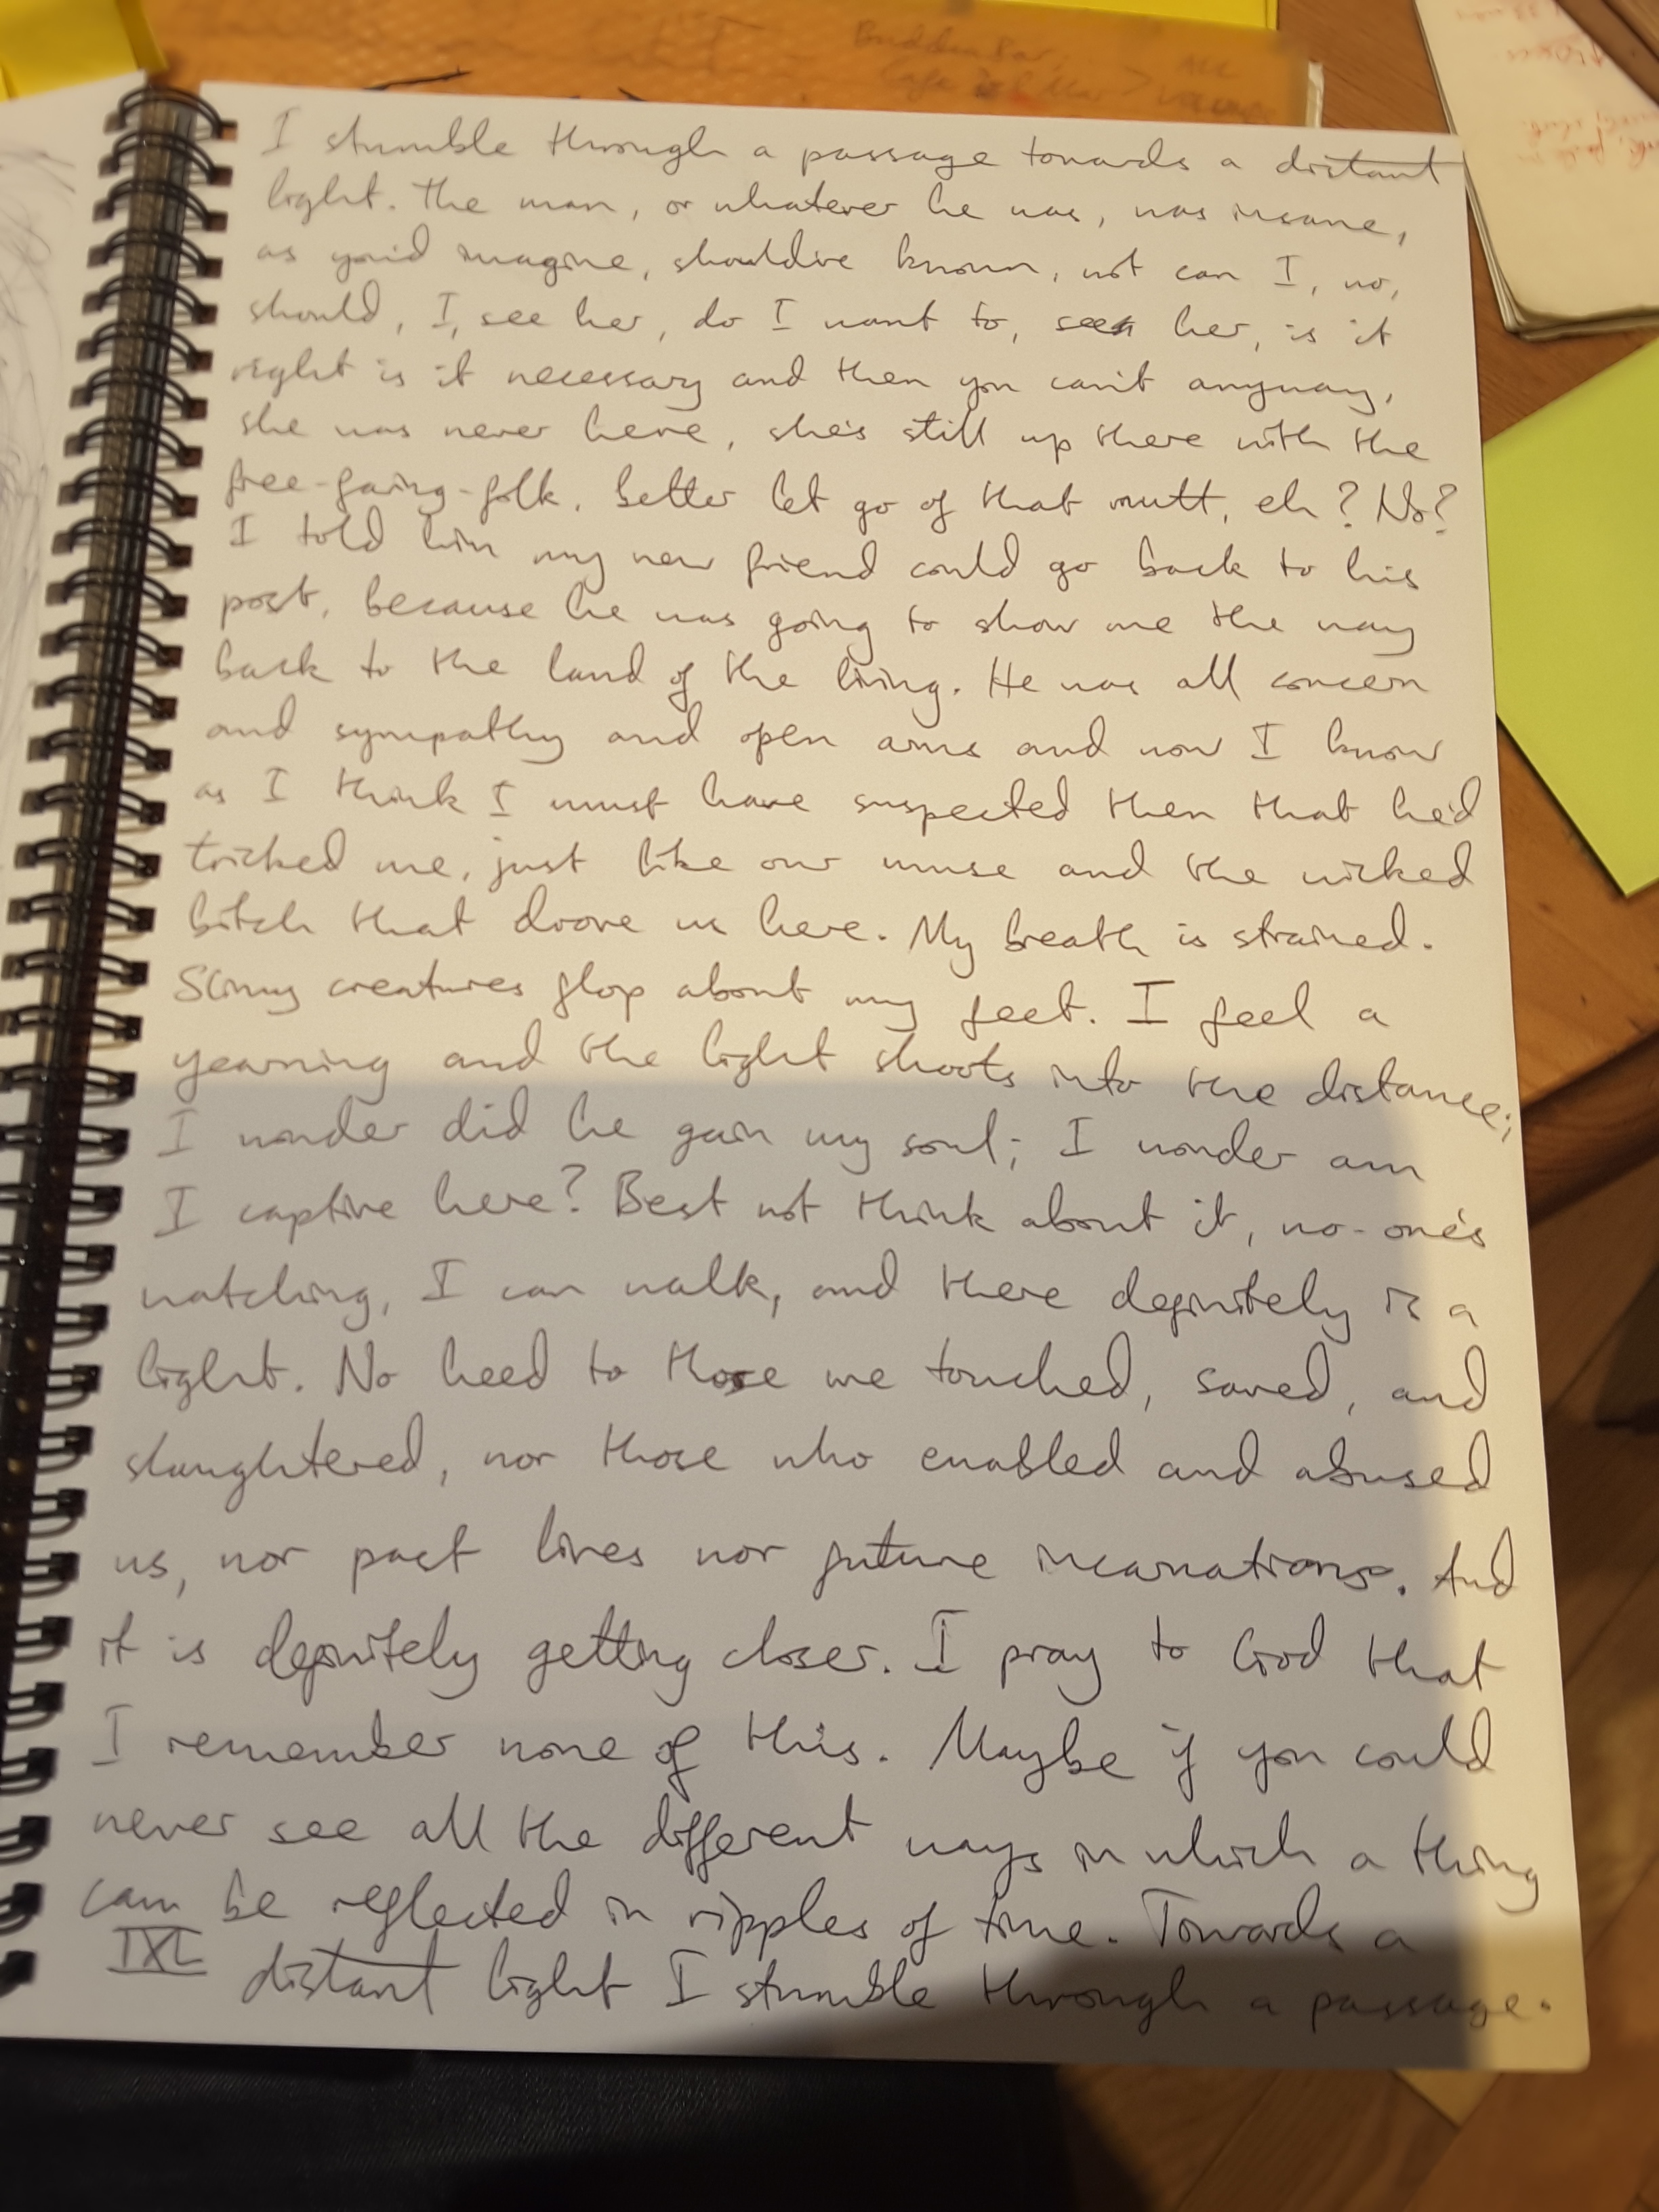 Buddha Bar,
I stumble through a passage towards a distant
light. The man, or whatever he was, was insane,
as you'd imagine, should've known, not can I, no,
should, I, see her, do I want to, see her, is it
right is it necessary and then you can't anyway,
she was never here, she's still up there with the
free-faring-folk. Better let go of that mutt, eh? No?
I told him my new friend could go back to his
post, because he was going to show me the way
back to the land of the living. He was all concern
and sympathy and open arms and now I know
as I think I must have suspected then that he'd
tricked me, just like our muse and the wicked
bitch that drove us here. My breath is strained.
Slimy creatures flop about my feet. I feel a
yearning and the light shoots into the distance;
I wonder did he gain my soul; I wonder am
I captive here? Best not think about it, no-one's
watching, I can walk, and there definitely is a
light. No heed to those we touched, saved, and
slaughtered, nor those who enabled and abused
us, nor past lives nor future incarnations. And
it is definitely getting closer. I pray to God that
I remember none of this. Maybe if you could
never see all the different ways in which a thing
can be reflected in ripples of time. Towards a
IXL distant light I stumble through a passage.